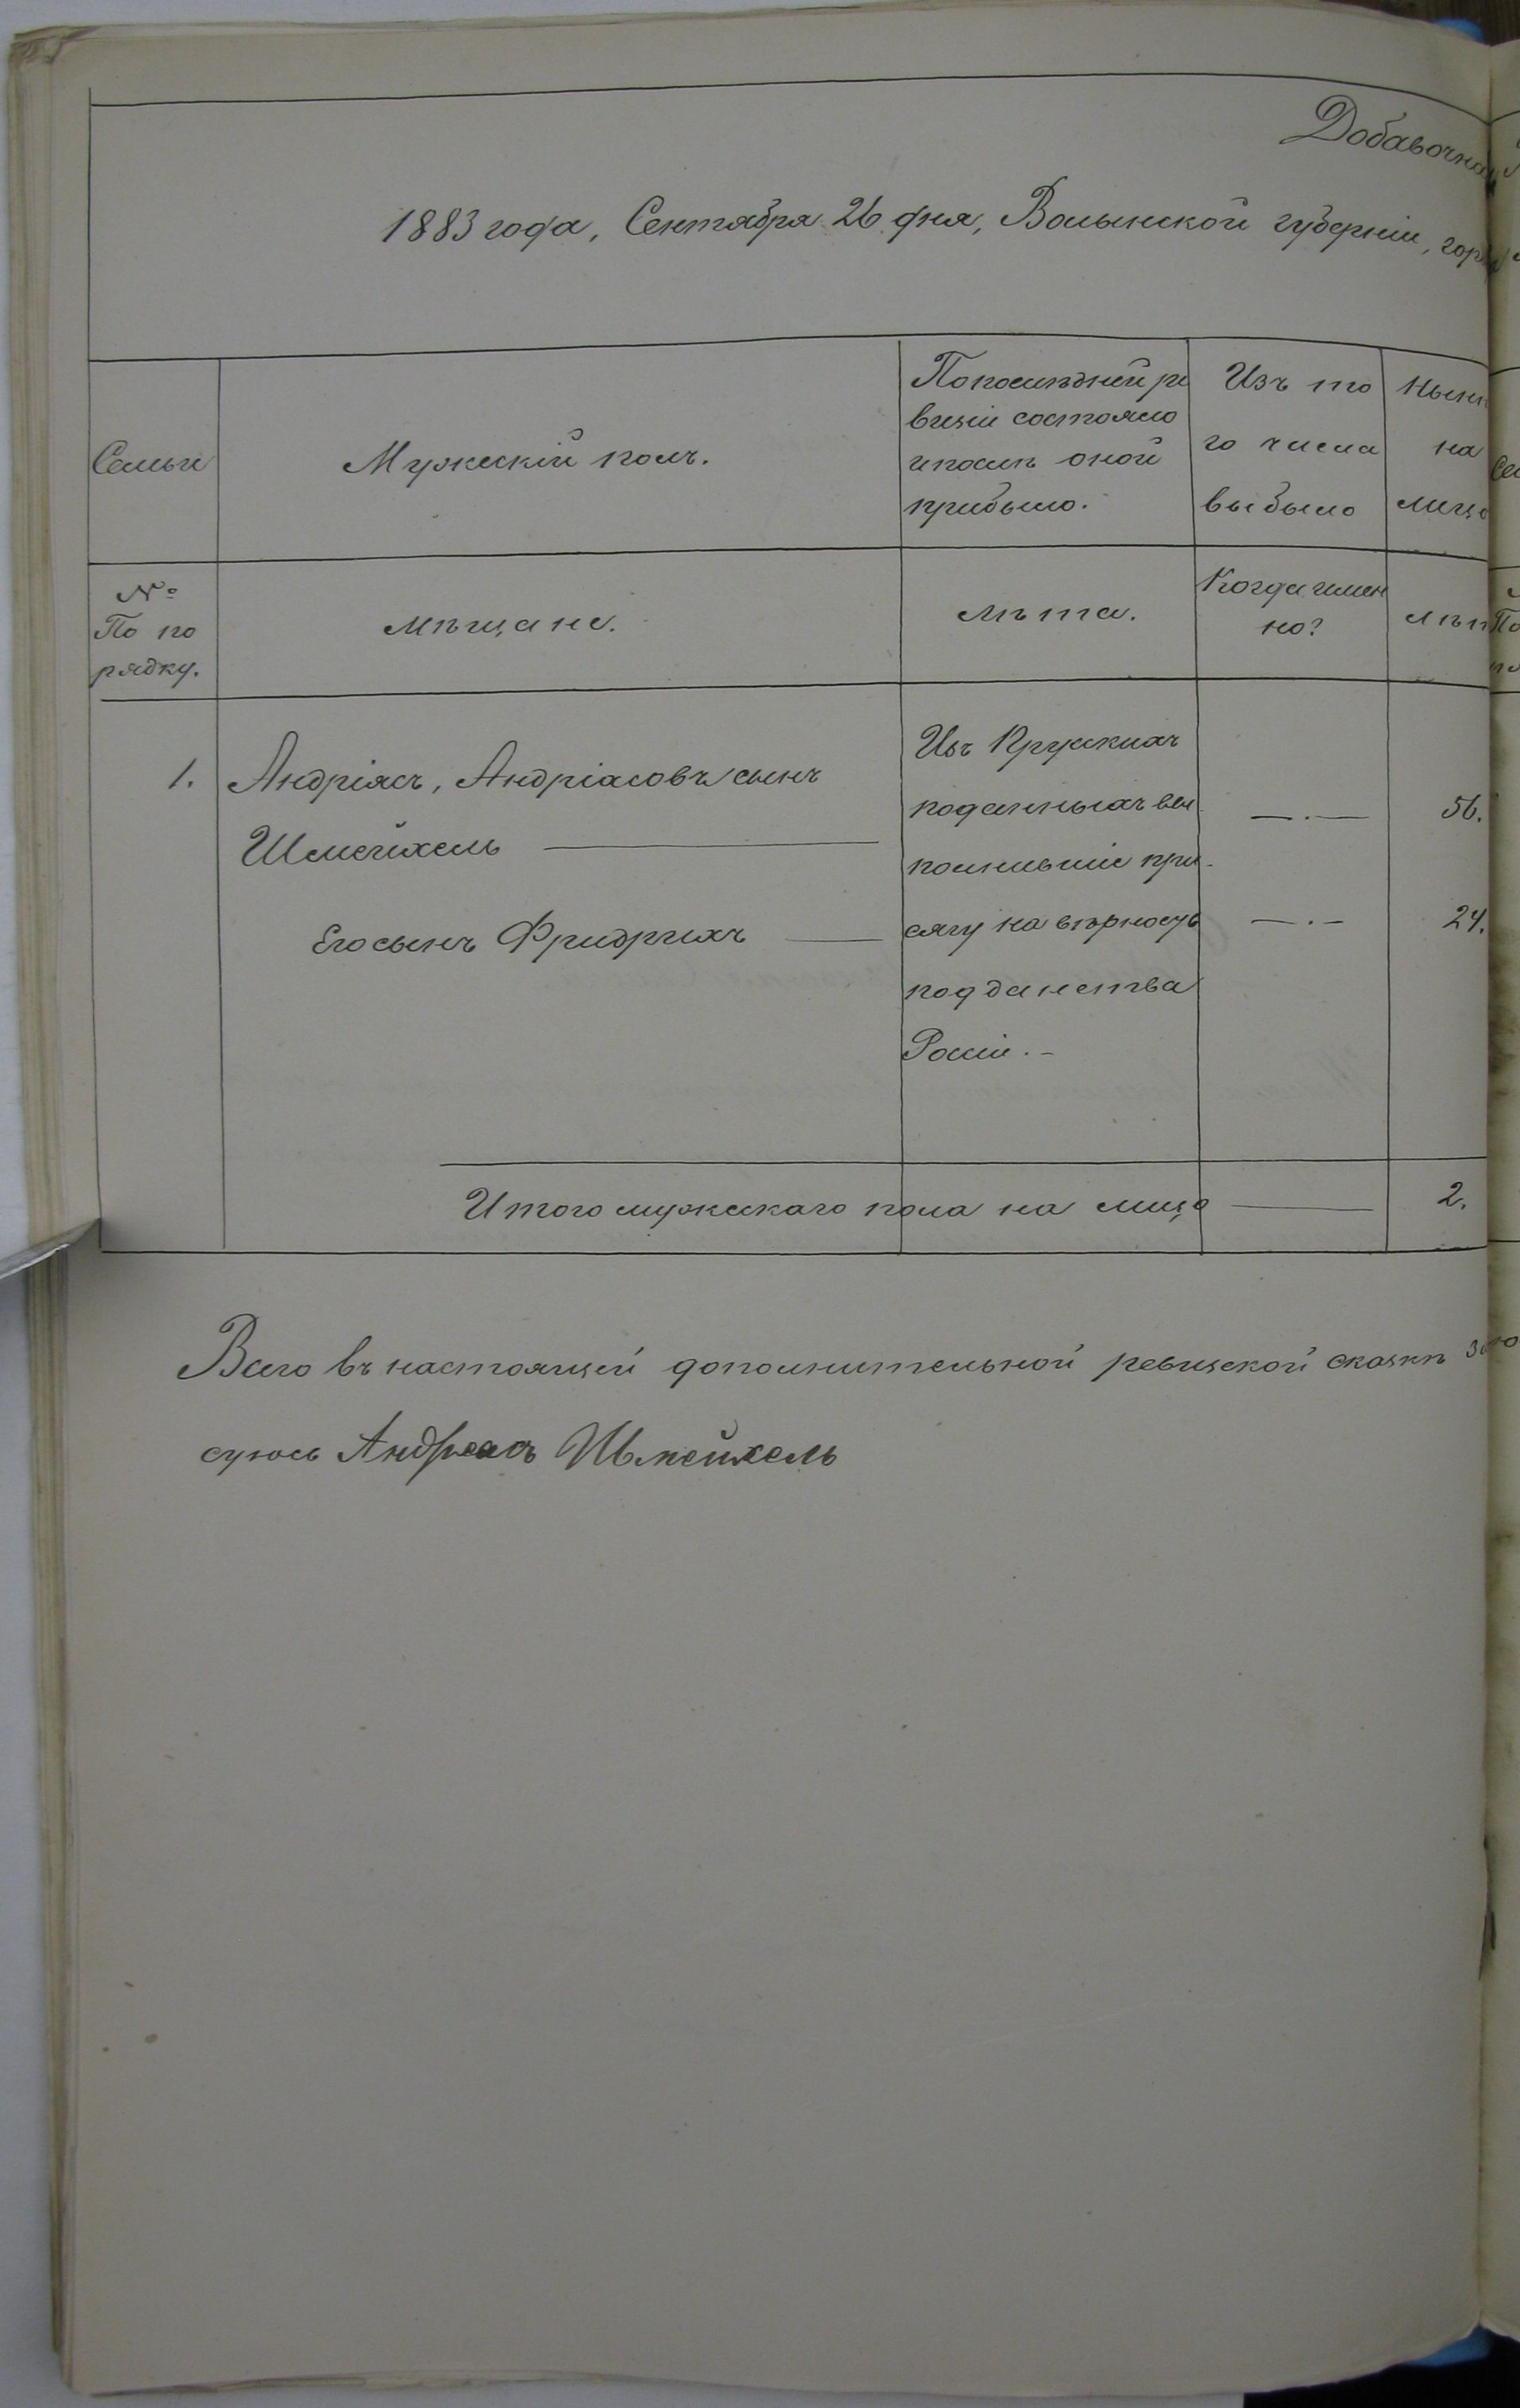 Добавочна
1883 года, Сентября 26 дня, Волынской губерніи, гор
Семьи
Мужескій полъ.
По послѣдней ре
визіи состояло
и послѣ оной
прибыло.
Изъ то
го числа
выбыло
Нынѣ
на
лицо
№
По по
рядку.
мѣщане.
лѣта.
Когда имен
но?
лѣт
1. Андріясъ, Андріасовъ сынъ
Шмейхель
Его сынъ Фридрихъ
Изъ Прускихъ
поданныхъ вы
полнившіе при-
сягу на вѣрность
подданства
Россіи.-
56.
24.
Итого мужескаго пола на лицо 2.
Всего въ настоящей дополнительной ревизской сказкѣ
суюсь Андреасъ Шмейхель